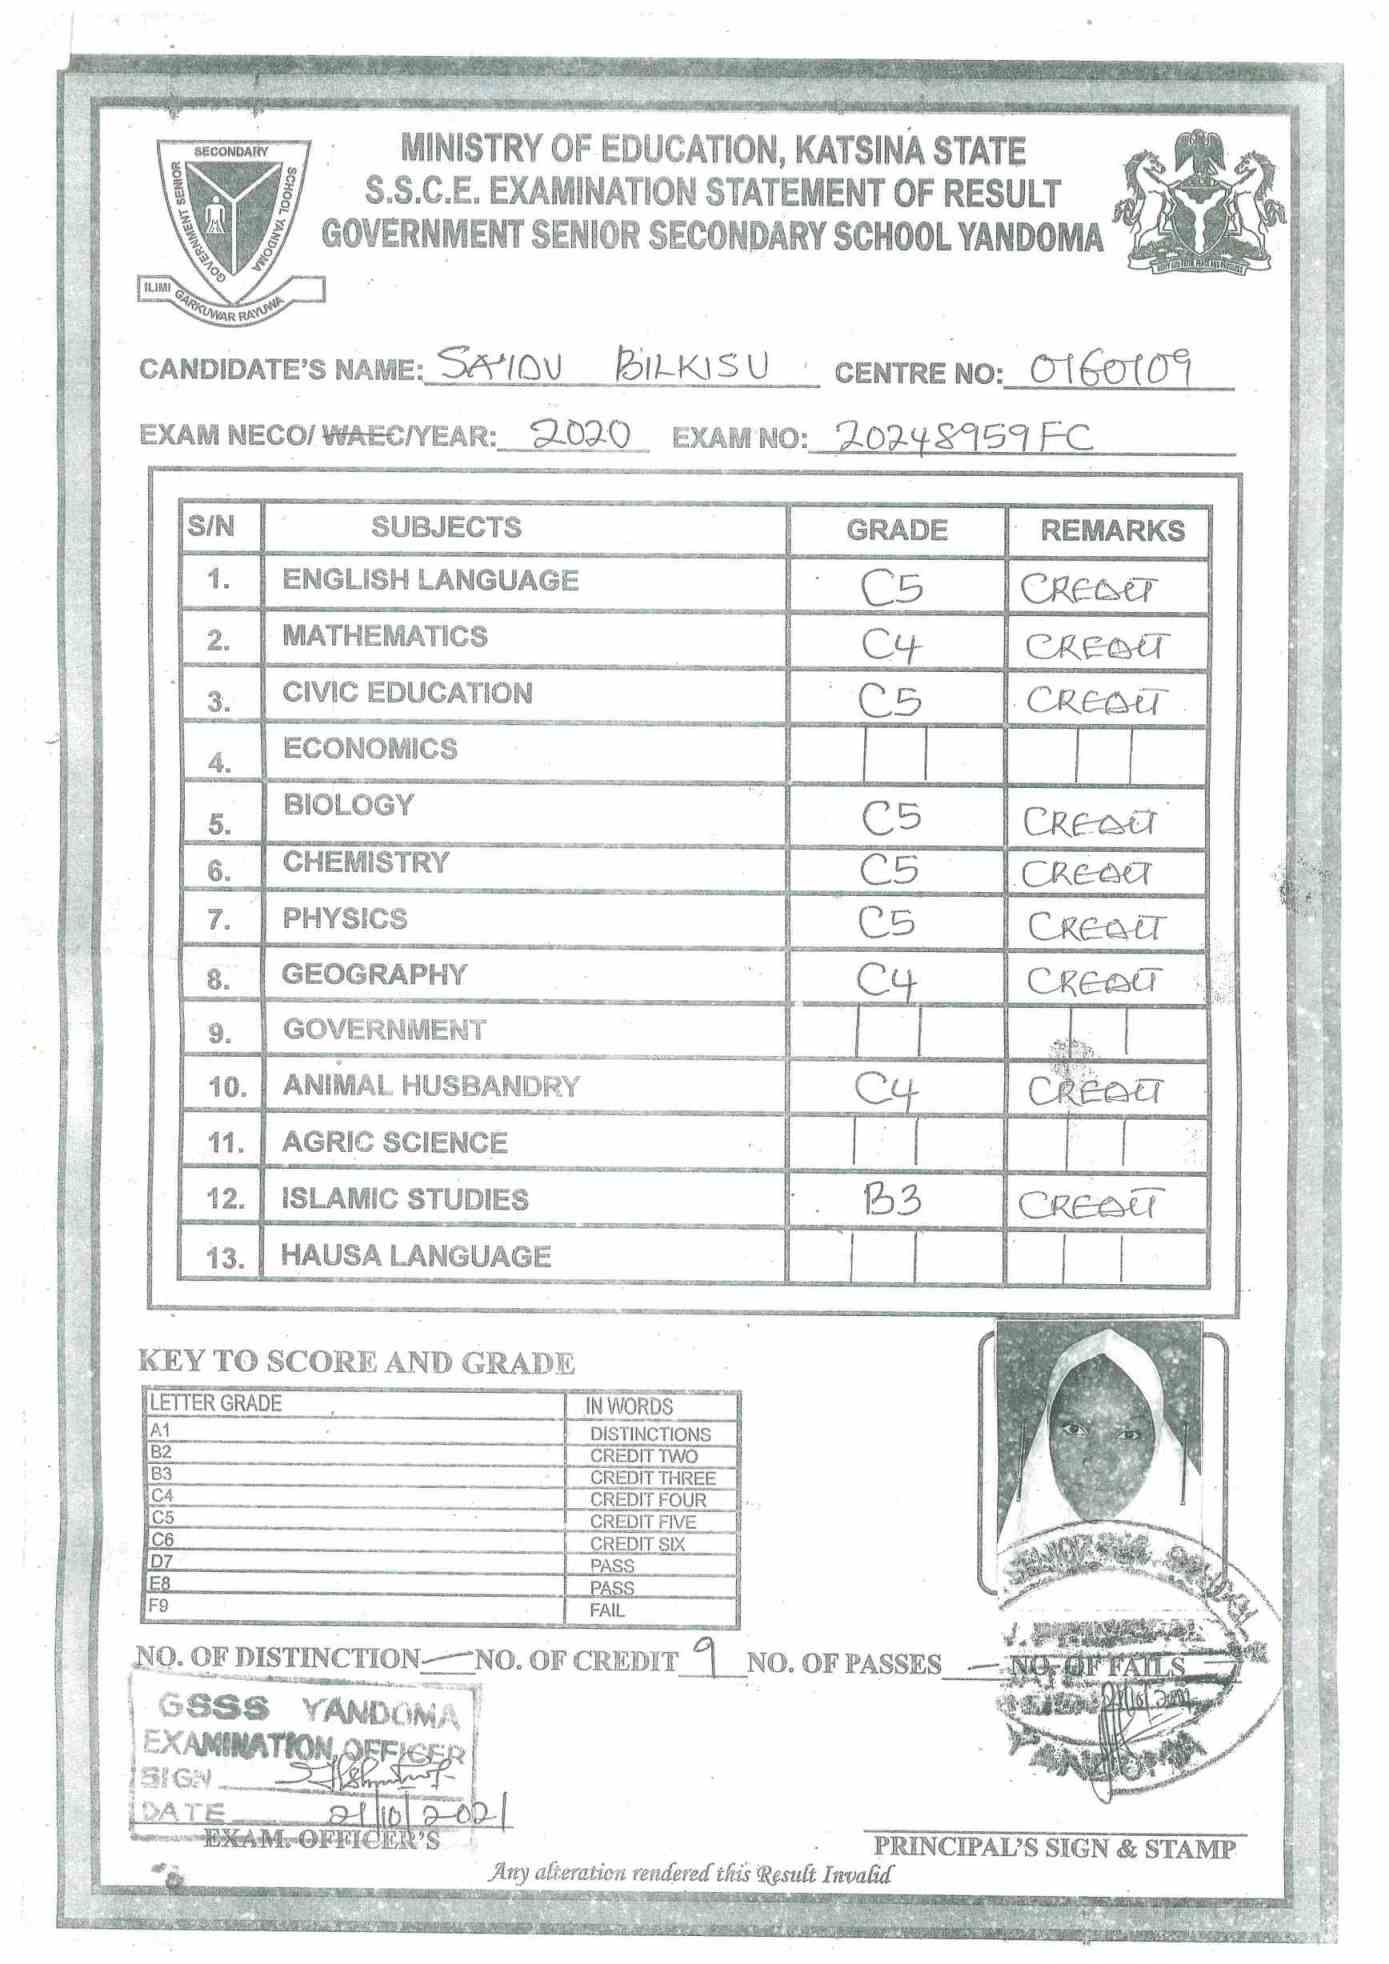 GOVERNMENT SENIOR SECONDARY SCHOOL YANDOMA
ILIMI GARKUWAR RAYUWA
MINISTRY OF EDUCATION, KATSINA STATE
S.S.C.E. EXAMINATION STATEMENT OF RESULT
GOVERNMENT SENIOR SECONDARY SCHOOL YANDOMA
CANDIDATE'S NAME: SA'IDU BILKISU CENTRE NO: 0160109
EXAM NECO/ WAEC/YEAR: 2020 EXAM NO: 20248959FC
S/N SUBJECTS GRADE REMARKS
1. ENGLISH LANGUAGE C5 CREDIT
2. MATHEMATICS C4 CREDIT
3. CIVIC EDUCATION C5 CREDIT
4. ECONOMICS
5. BIOLOGY C5 CREDIT
6. CHEMISTRY C5 CREDIT
7. PHYSICS C5 CREDIT
8. GEOGRAPHY C4 CREDIT
9. GOVERNMENT
10. ANIMAL HUSBANDRY C4 CREDIT
11. AGRIC SCIENCE
12. ISLAMIC STUDIES B3 CREDIT
13. HAUSA LANGUAGE
KEY TO SCORE AND GRADE
LETTER GRADE IN WORDS
A1 DISTINCTIONS
B2 CREDIT TWO
B3 CREDIT THREE
C4 CREDIT FOUR
C5 CREDIT FIVE
C6 CREDIT SIX
D7 PASS
E8 PASS
F9 FAIL
NO. OF DISTINCTION — NO. OF CREDIT 9 NO. OF PASSES — NO. OF FAILS —
GSSS YANDOMA
EXAMINATION OFFICER
SIGN
DATE 21/10/2021
EXAM. OFFICER'S
SENIOR SEC. SCHOOL
PRINCIPAL
YANDOMA
PRINCIPAL'S SIGN & STAMP
Any alteration rendered this Result Invalid